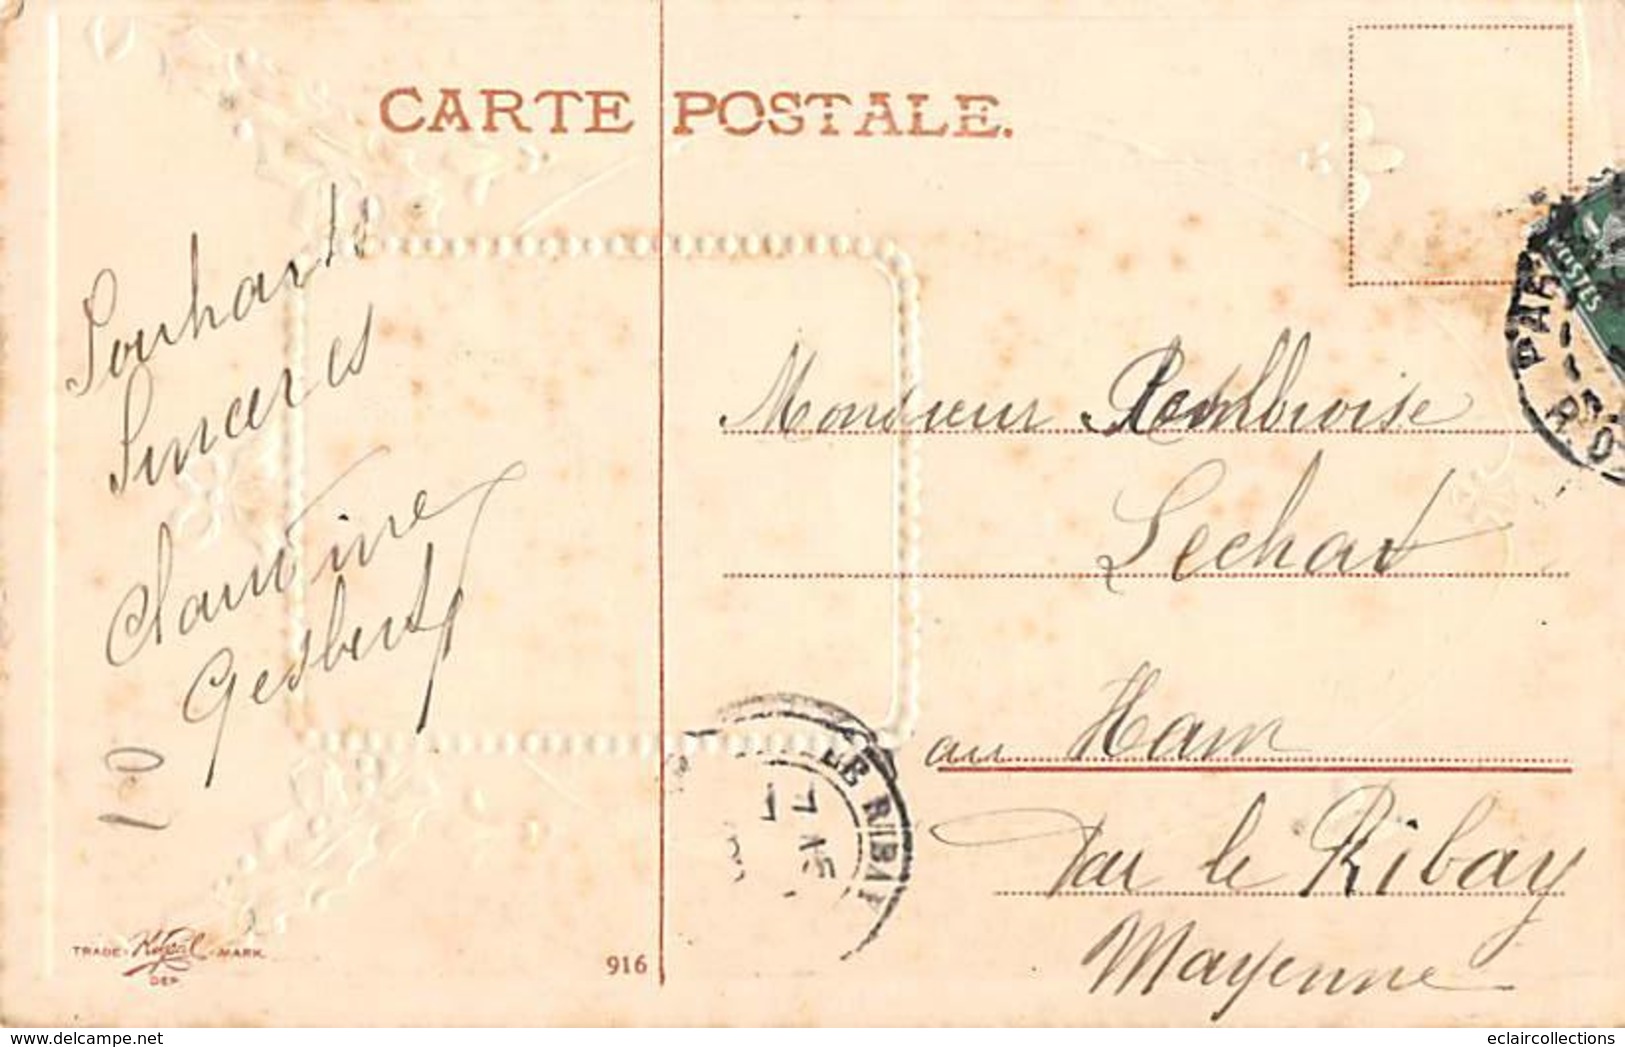 CARTE POSTALE.
Souhaits
Sincères
Clantine
Gesbert
100
Monsieur Rembroise
Lechat
au Ham
Par le Ribay
Mayenne
LE RIBAY
POSTES
PARIS
TRADE-MARK.
DEP
916
delcampe.net
eclaircollections